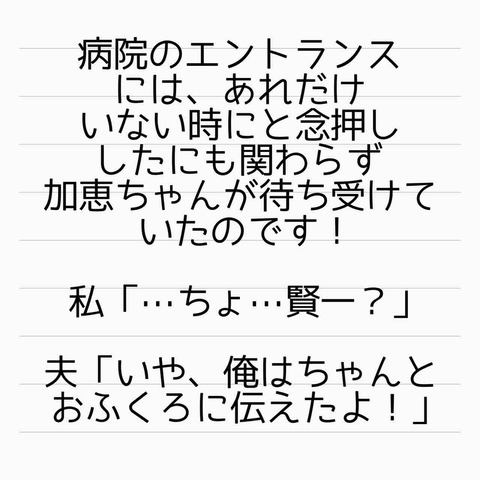 病院のエントランス
には、あれだけ
いない時にと念押し
したにも関わらず
加恵ちゃんが待ち受けて
いたのです！
私「…ちょ…賢一？」
夫「いや、俺はちゃんと
おふくろに伝えたよ！」